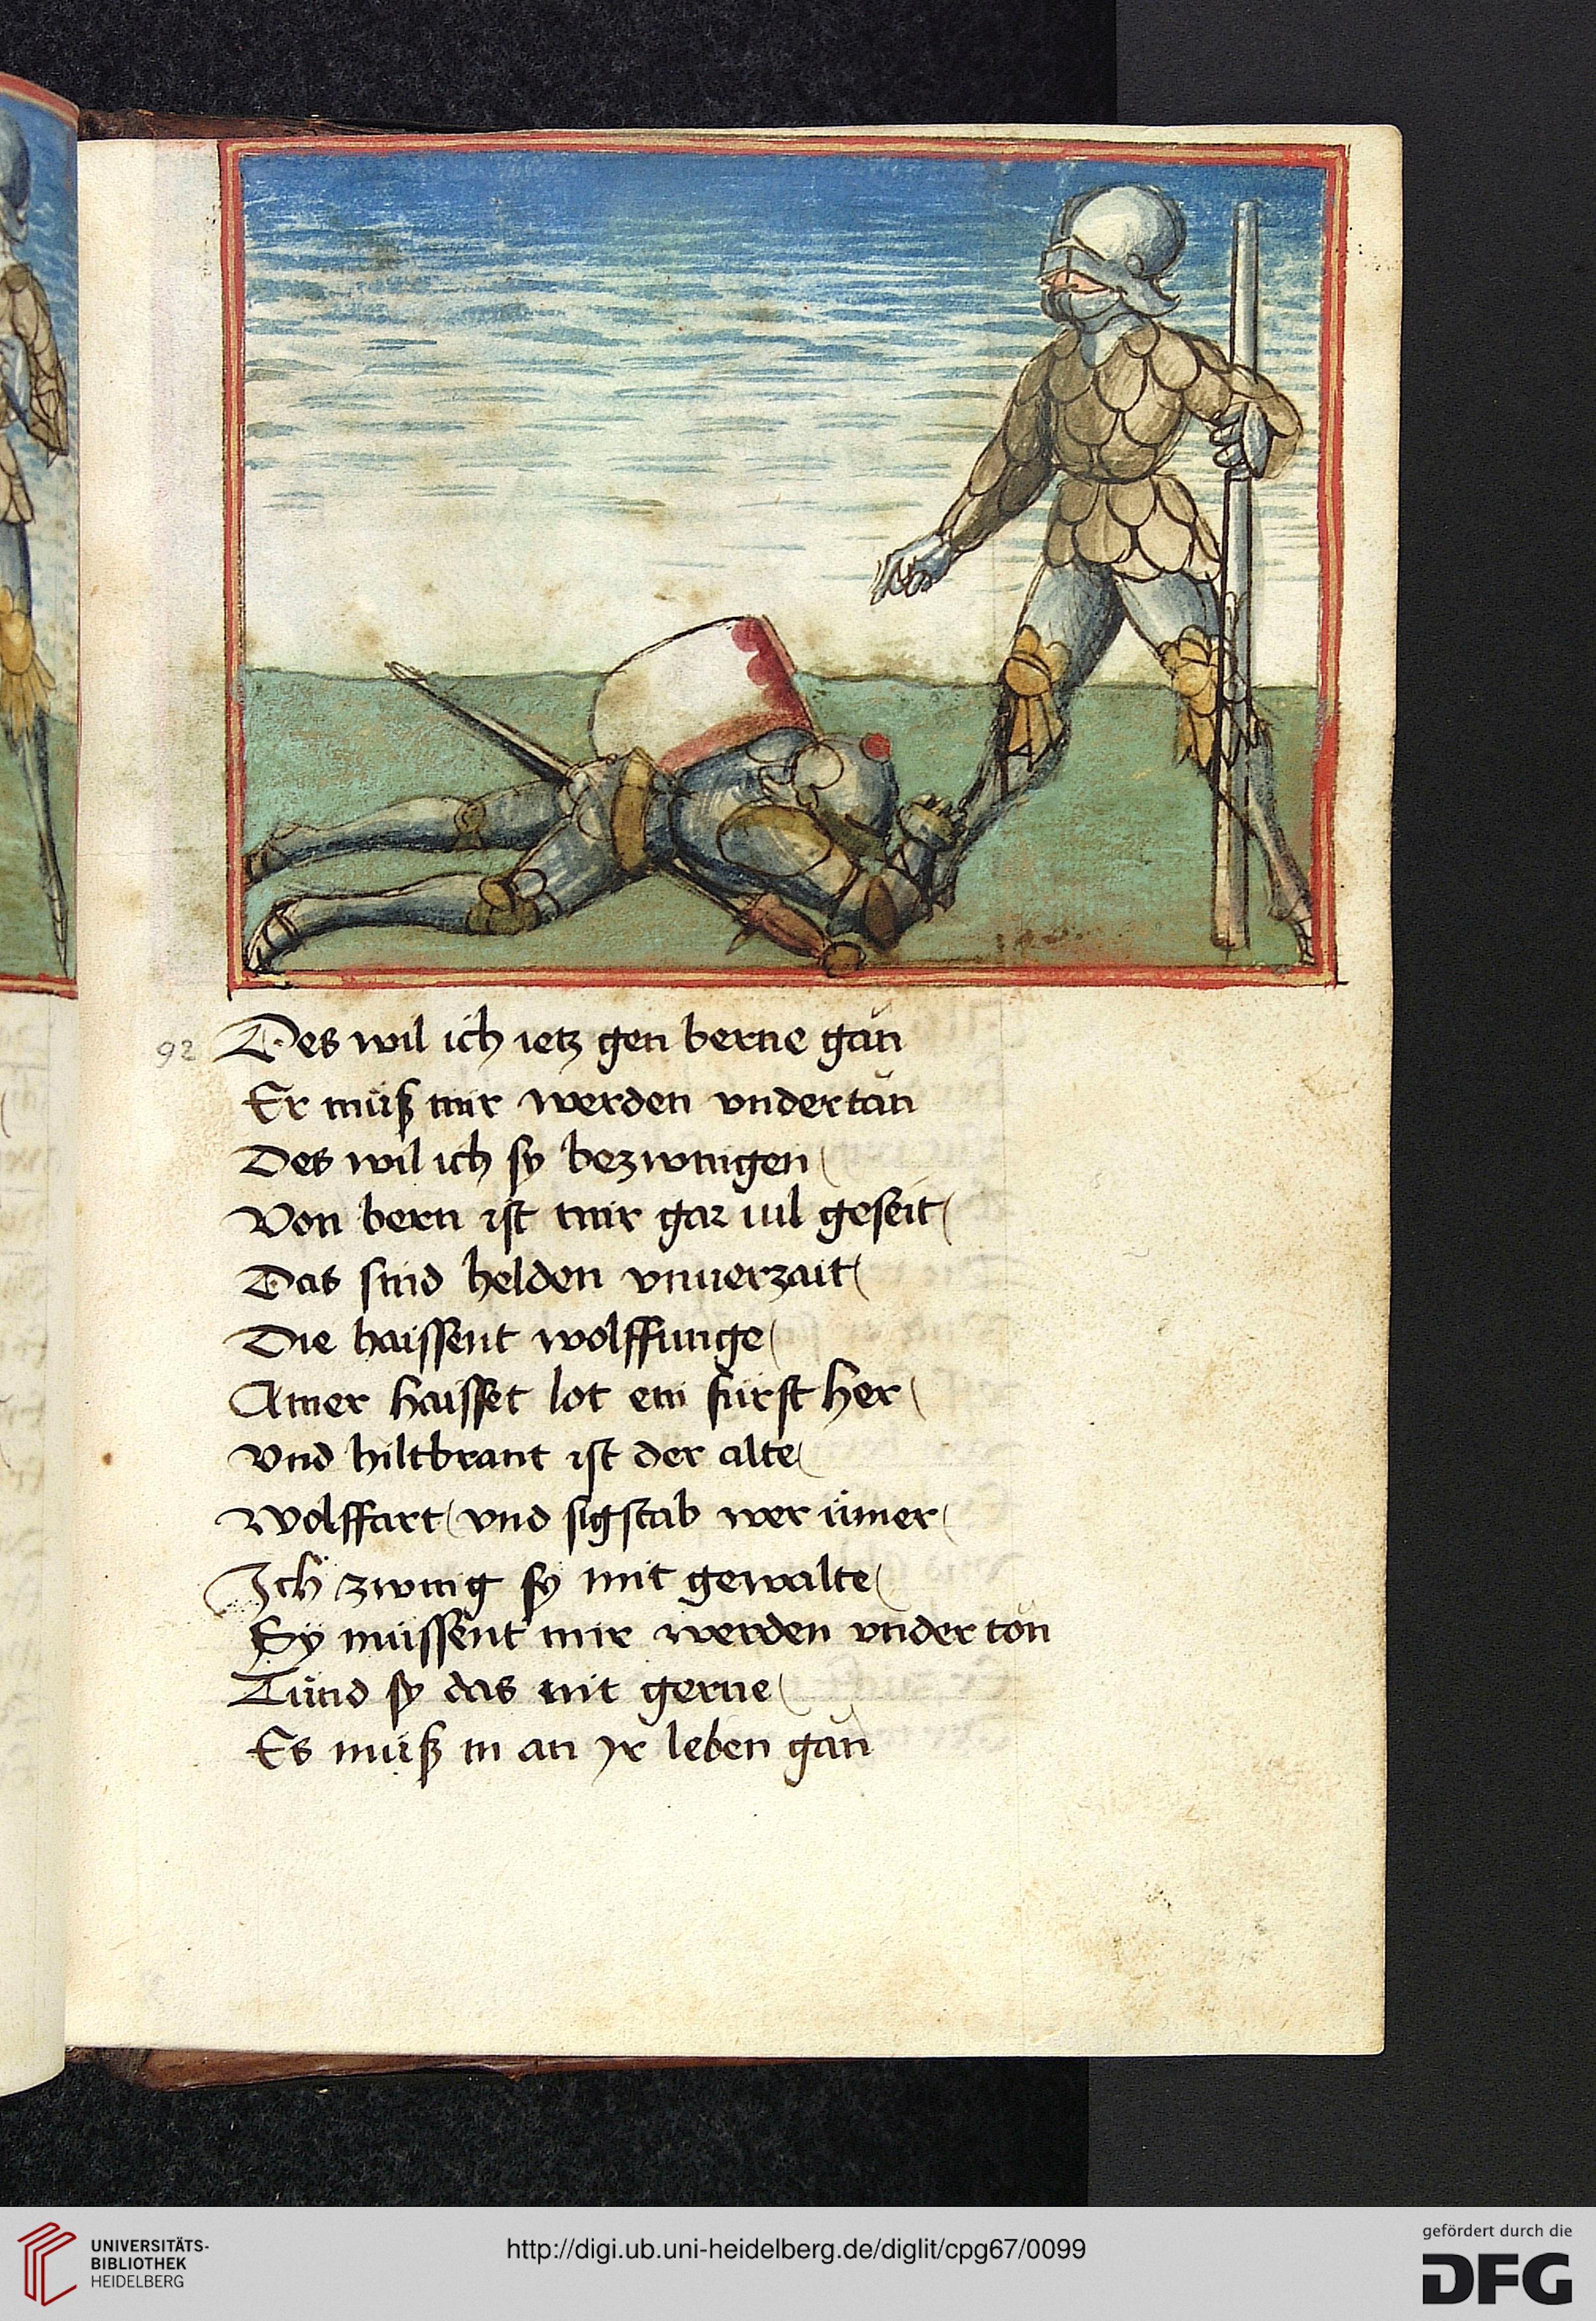 92
Des wil ich ietz gen berne gän
Er müß mir werden vndertän
Des wil ich sy bezwingen
Von bern ist mir gar uil geseit
Das sind helden vnuerzait
Die haissent wolffinge
Ainer haisset lot ein fürst her
Vnd hiltbrant ist der alte
Wolffart vnd sigstab wer ümer
Ich zwing sy mit gewalte
Sÿ müssent mir werden vnder ton
Tünd sy das nit gerne
Es müß in an yr leben gän
UNIVERSITÄTS-
BIBLIOTHEK
HEIDELBERG
http://digi.ub.uni-heidelberg.de/diglit/cpg67/0099
gefördert durch die
DFG